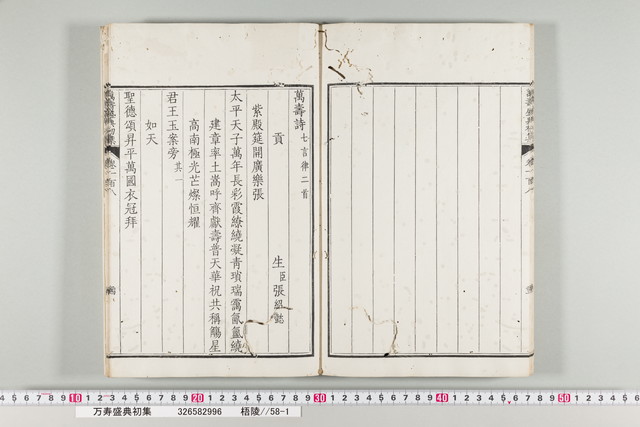 萬壽詩七言律二首
貢生臣張紹懿
紫殿筵開廣樂張
太平天子萬年長彩霞繚繞凝青瑣瑞靄氤氳繞
建章率土嵩呼齊獻壽普天華祝共稱觴星
高南極光芒燦恒耀
君王玉案旁其一
如天
聖德頌昇平萬國衣冠拜
萬壽盛典初集
卷一百八
萬壽盛典初集
卷一百八
10 20 30 40 50
万寿盛典初集 326582996 梧陵//58-1